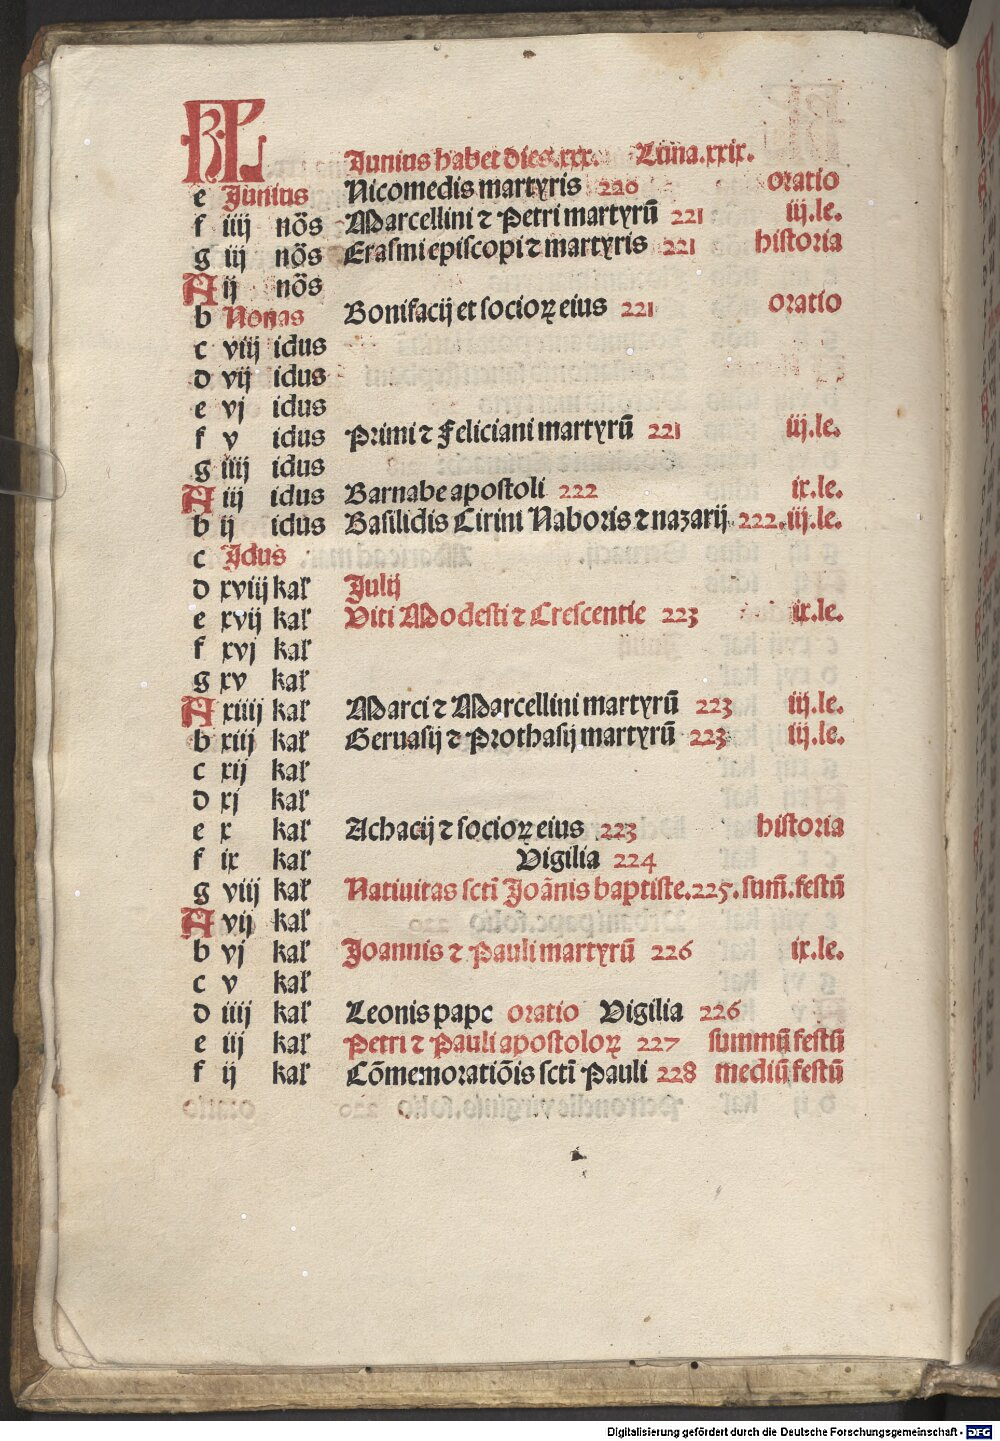 KL Junius habet dies.xxx. Luna.xxix.
e Junius Nicomedis martyris 220 oratio
f iiij nõs Marcellini ⁊ Petri martyrũ 221 iij.le.
g iij nõs Erasmi episcopi ⁊ martyris 221 historia
A ij nõs
b Nonas Bonifacij et socioꝝ eius 221 oratio
c viij idus
d vij idus
e vj idus
f v idus Primi ⁊ Feliciani martyrũ 221 iij.le.
g iiij idus
A iij idus Barnabe apostoli 222 ix.le.
b ij idus Basilidis Cirini Naboris ⁊ nazarij 222.iij.le.
c Jdus
d xviij kal' Julij
e xvij kal' Viti Modesti ⁊ Crescentie 223 ix.le.
f xvj kal'
g xv kal'
A xiiij kal' Marci ⁊ Marcellini martyrũ 223 iij.le.
b xiij kal' Geruasij ⁊ Prothasij martyrũ 223 iij.le.
c xij kal'
d xj kal'
e x kal' Achacij ⁊ socioꝝ eius 223 historia
f ix kal' Vigilia 224
g viij kal' Natiuitas sctĩ Joãnis baptiste.225.sum̃.festũ
A vij kal'
b vj kal' Joannis ⁊ Pauli martyrũ 226 ix.le.
c v kal'
d iiij kal' Leonis pape oratio Vigilia 226
e iij kal' Petri ⁊ Pauli apostoloꝝ 227 summũ festũ
f ij kal' Cõmemoratiõis sctĩ Pauli 228 mediũ festũ
Digitalisierung gefördert durch die Deutsche Forschungsgemeinschaft - DFG